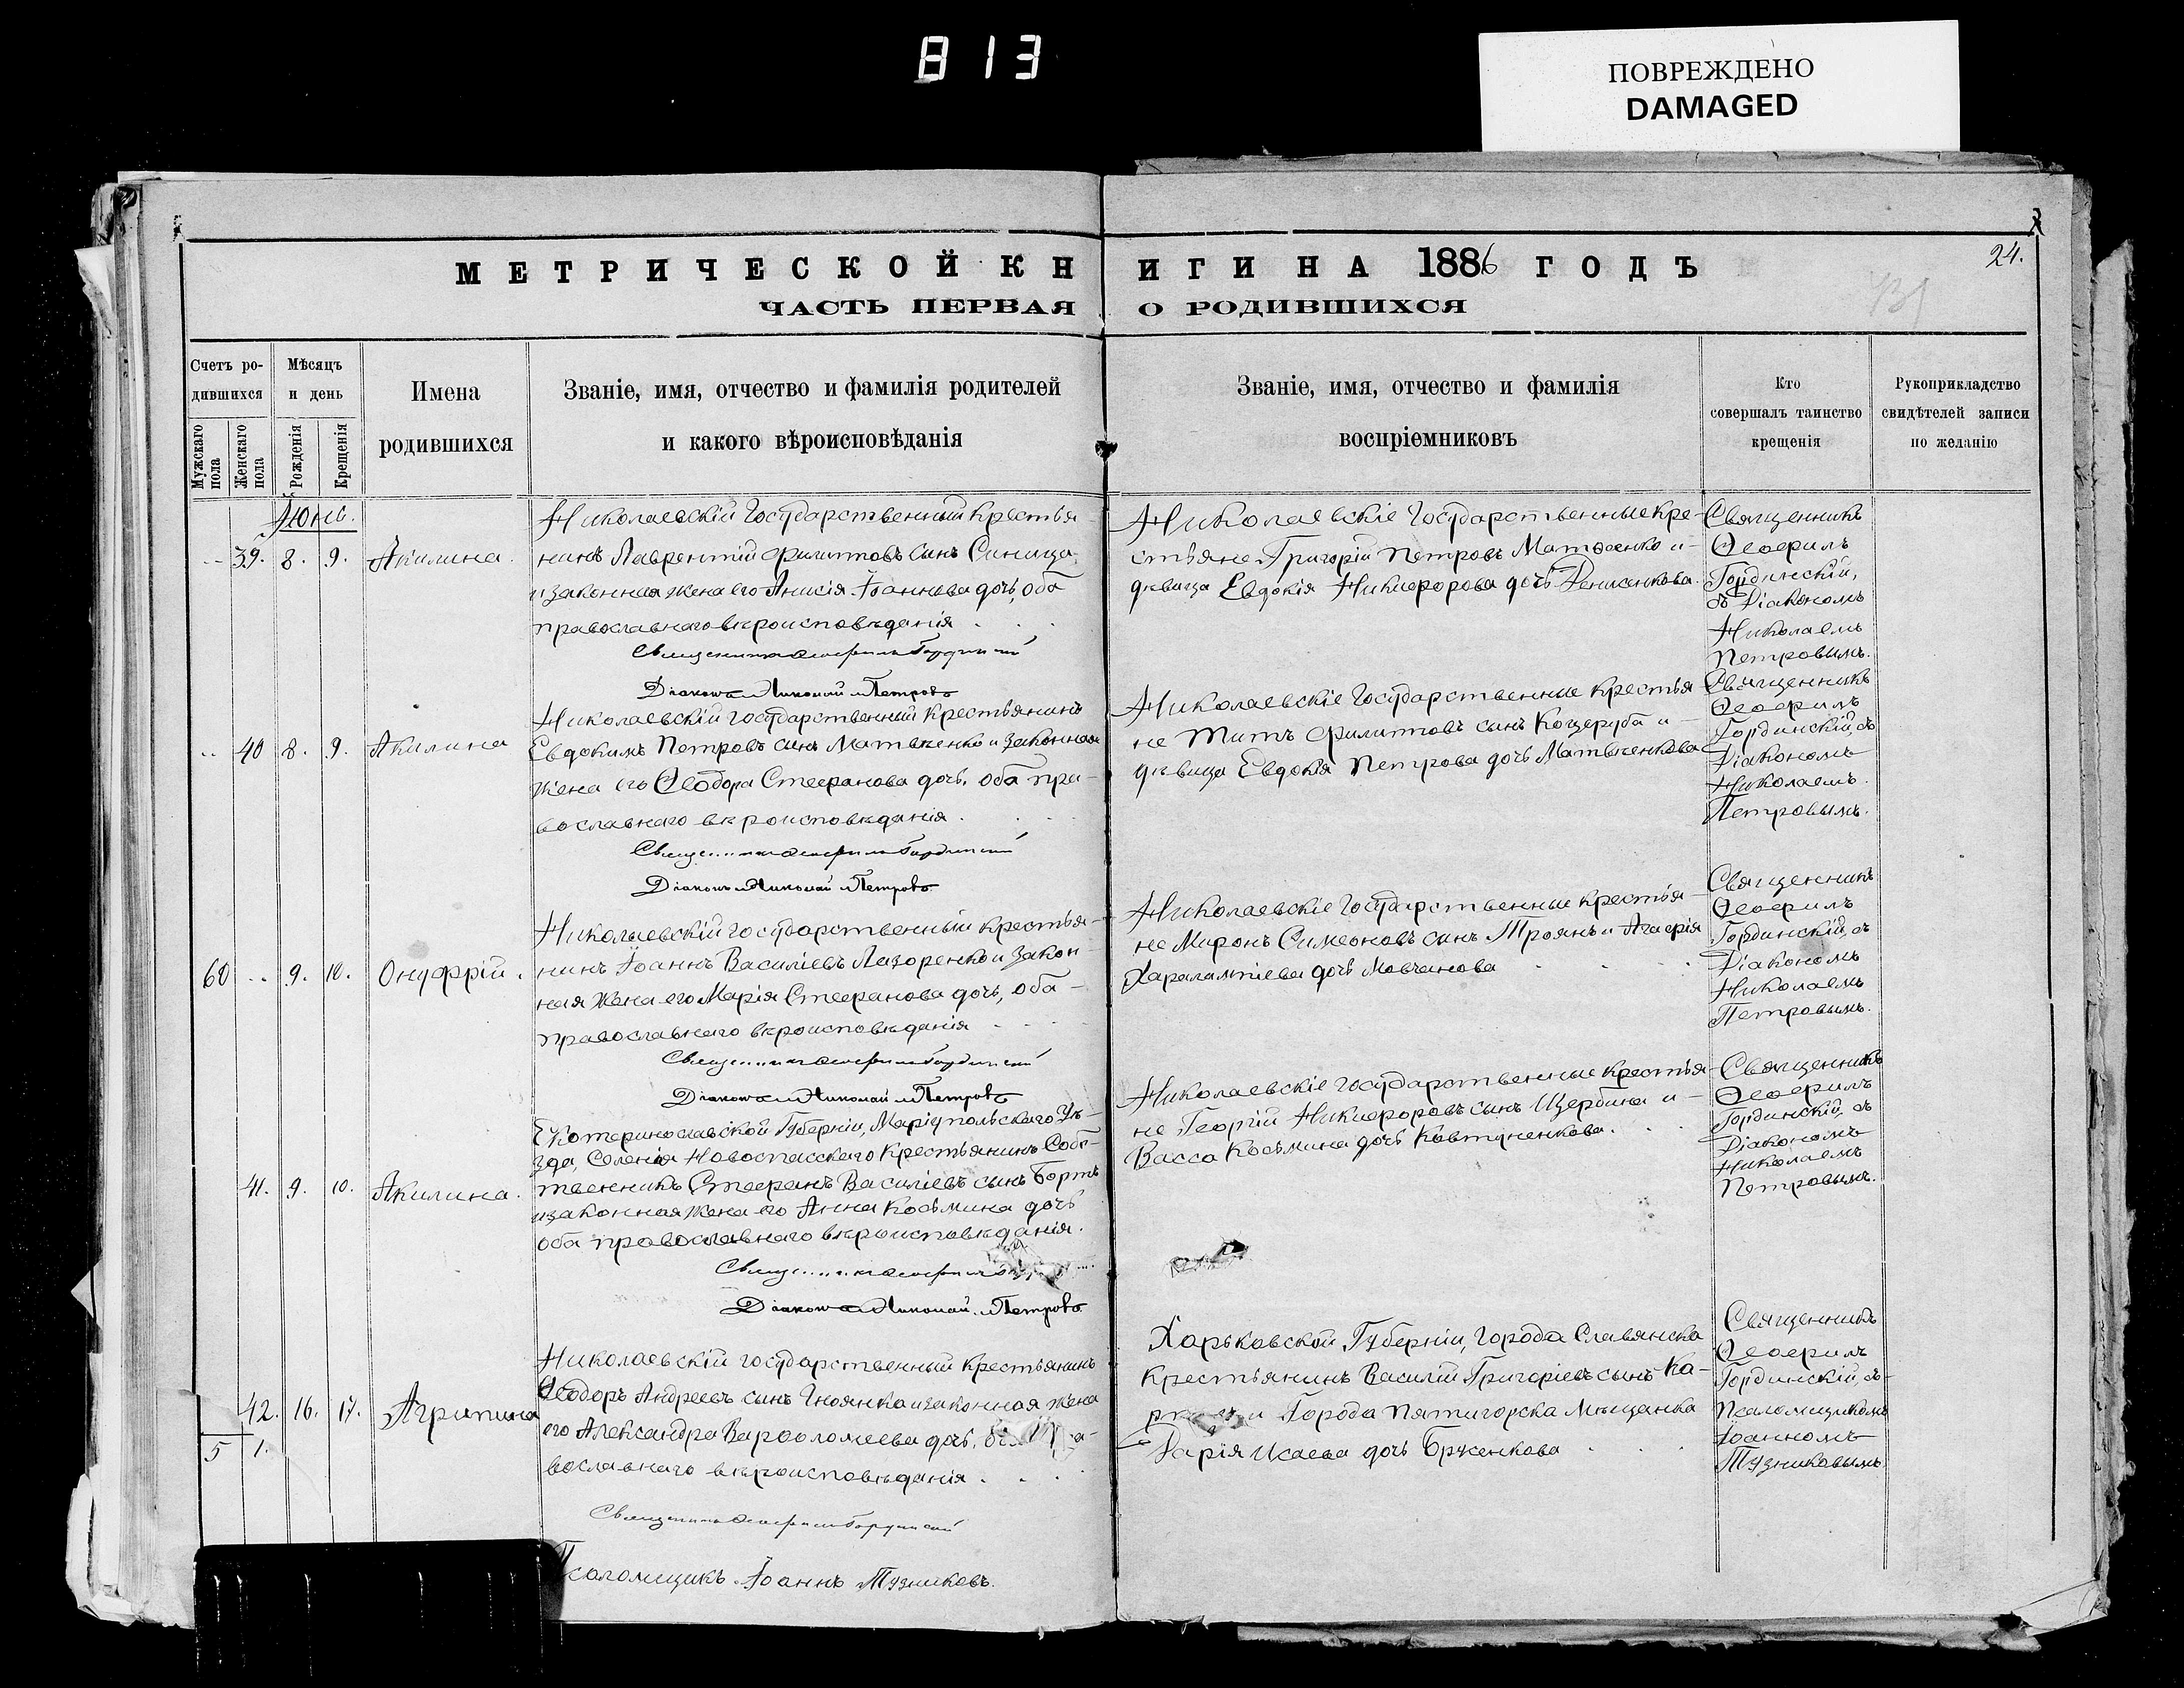 813
ПОВРЕЖДЕНО
DAMAGED
МЕТРИЧЕСКОЙ КНИГИ НА 1886 ГОДЪ
24.
ЧАСТЬ ПЕРВАЯ О РОДИВШИХСЯ
Счетъ родившихся
Мужскаго пола
Женскаго пола
Мѣсяцъ и день
Рожденія
Крещенія
Имена родившихся
Званіе, имя, отчество и фамилія родителей
и какого вѣроисповѣданія
Званіе, имя, отчество и фамилія
воспріемниковъ
Кто
совершалъ таинство
крещенія
Рукоприкладство
свидѣтелей записи
по желанію
Іюнь.
39. 8. 9. Акилина.
Николаевскій Государственный крестья-
нинъ Лаврентій Филипповъ сынъ Синица
и законная жена его Анисія Іоаннова дочь, оба
православнаго вѣроисповѣданія
Священникъ Ѳеофилъ Гординскій
Діаконъ Николай Петровъ
Николаевскіе Государственные кре-
стьяне Григорій Петровъ Матвеенко и
дѣвица Евдокія Никифорова дочь
Священникъ
Ѳеофилъ
Гординскій,
съ Діакономъ
Николаемъ
Петровымъ.
40 8. 9. Акилина
Николаевскій государственный крестьянинъ
Евдокимъ Петровъ сынъ Матвѣенко и законная
жена его Ѳеодора Стефанова дочь, оба пра-
вославнаго вѣроисповѣданія.
Священникъ Ѳеофилъ Гординскій
Діаконъ Николай Петровъ
Николаевскіе Государственные крестья
не Титъ Филипповъ сынъ Коцеруба и
дѣвица Евдокія Петрова дочь Матвѣенкова
Священникъ
Ѳеофилъ
Гординскій, съ
Діакономъ
Николаемъ
Петровымъ.
60 9. 10. Онуфрій.
Николаевскій государственный крестья-
нинъ Іоаннъ Василіевъ Лазоренко и закон
ная жена его Марія Стефанова дочь, оба
православнаго вѣроисповѣданія
Священникъ Ѳеофилъ Гординскій
Діаконъ Николай Петровъ
Николаевскіе Государственные крестья-
не Миронъ Симеоновъ сынъ Троянъ и Агафія
Харалампіева дочь Мовчанова
Священникъ
Ѳеофилъ
Гординскій, съ
Діакономъ
Николаемъ
Петровымъ.
41. 9. 10. Акилина.
Екатеринославской Губерніи, Маріупольскаго Уѣ-
зда, Селенія Новоспасскаго Крестьянинъ Собс-
твенникъ Стефанъ Василіевъ сынъ Бортъ
и законная жена его Анна Косьмина дочь
оба православнаго вѣроисповѣданія.
Священникъ Ѳеофилъ
Діаконъ Николай Петровъ
Николаевскіе государственные крестья
не Георгій Никифоровъ сынъ Щербина и
Васса Косьмина дочь Ковтуненкова.
Священникъ
Ѳеофилъ
Гординскій, съ
Діакономъ
Николаемъ
Петровымъ.
42. 16. 17. Агрипина
5 1.
Николаевскій государственный крестьянинъ
Ѳеодоръ Андреевъ сынъ Гноянко и законная жена
его Александра Варфоломеева дочь,
вославнаго вѣроисповѣданія.
Священникъ Ѳеофилъ Гординскій
Псаломщикъ Іоаннъ Тузниковъ.
Харьковской Губерніи, города Славянска
Крестьянинъ Василій Григоріевъ сынъ Ка-
и Города Пятигорска Мѣщанка
Дарія Исаева дочь Брженкова
Священникъ
Ѳеофилъ
Гординскій, съ
Псаломщикомъ
Іоанномъ
Тузниковымъ